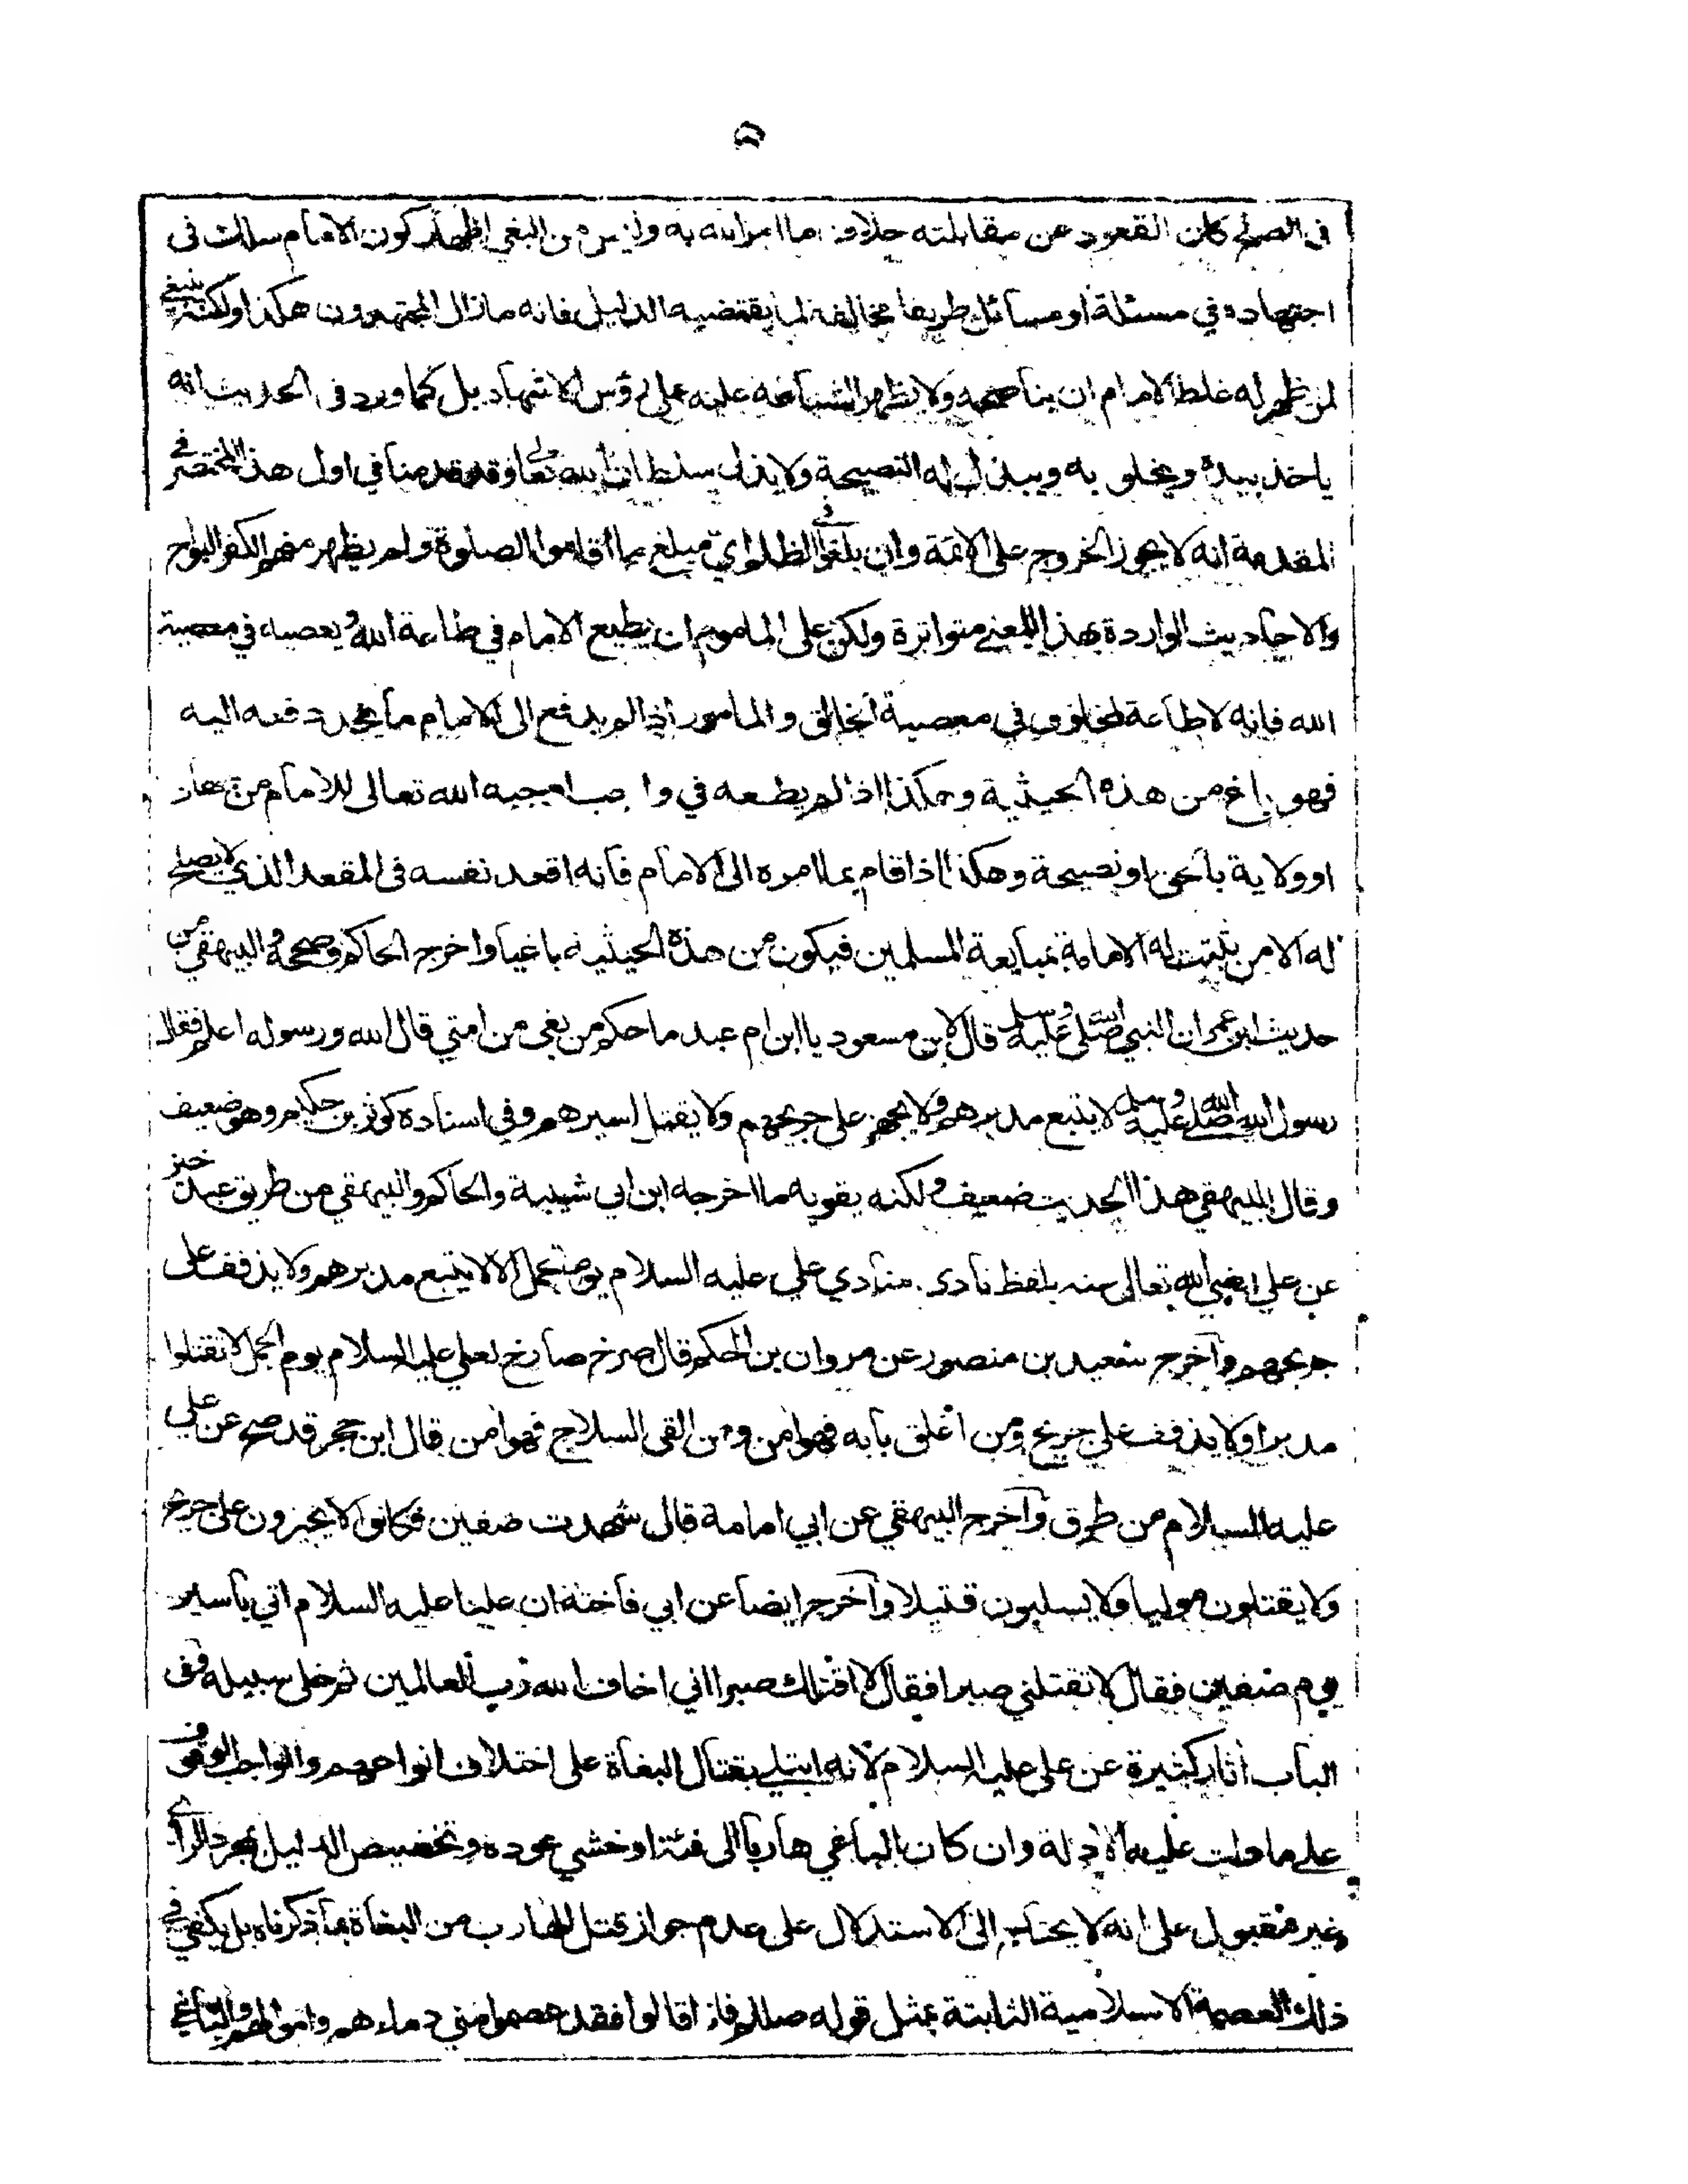 ٥
في الصلح كان القعود عن مقابلته خلاف ما امر الله به وليس من البغي اظهار كون الامام سلك في
اجتهاده في مسئلة او مسائل طريقا مخالفة لما يقتضيه الدليل فانه مازال المجتهدون هكذا ولكنه ينبغي
لمن ظهر له غلط الامام ان يناصحه ولا يظهر الشناعة عليه على رؤس الاشهاد بل كما ورد في الحديث انه
ياخذ بيده ويخلو به ويبذل له النصيحة ولا يذل سلطان الله تعالى وقد قدمنا في اول هذا المختصر في
المقدمة انه لا يجوز الخروج على الائمة وان بلغوا في الظلم اي مبلغ ما اقاموا الصلوة ولم يظهر منهم الكفر البواح
والاحاديث الواردة بهذا المعنى متواترة ولكن على الماموم ان يطيع الامام في طاعة الله ويعصيه في معصية
الله فانه لا طاعة لمخلوق في معصية الخالق والمامور اذا لم يدفع الى الامام ما يجب دفعه اليه
فهو باغ من هذه الحيثية وهكذا اذا لم يطعه في واجب اوجبه الله تعالى للامام من جهاد
او ولاية باخص او نصيحة وهكذا اذا قام بما امره الى الامام فانه اقعد نفسه في المقعد الذي لا يصلح
له الا من تثبت له الامامة بمبايعة المسلمين فيكون من هذه الحيثية باغيا واخرج الحاكم وصححه والبيهقي من
حديث ابن عمر ان النبي صلى الله عليه وسلم قال لابن مسعود يا ابن ام عبد ما حكم من بغى من امتي قال الله ورسوله اعلم فقال
رسول الله صلى الله عليه وسلم لا يتبع مدبرهم ولا يجهز على جريحهم ولا يقتل اسيرهم وفي اسناده كوثر بن حكيم وهو ضعيف
وقال البيهقي هذا الحديث ضعيف ولكنه يقويه ما اخرجه ابن ابي شيبة والحاكم والبيهقي من طريق عبد خير
عن علي رضي الله تعالى عنه بلفظ نادى منادي علي عليه السلام يوم الجمل الا لا يتبع مدبرهم ولا يذفف على
جريحهم وآخرج سعيد بن منصور عن مروان بن الحكم قال صرخ صارخ لعلي عليه السلام يوم الجمل لا تقتلوا
مدبرا ولا يذفف على جريح ومن اغلق بابه فهو امن ومن القى السلاح فهو امن قال ابن حجر قد صح عن علي
عليه السلام من طرق وآخرج البيهقي عن ابي امامة قال شهدت صفين فكانوا لا يجيزون على جريح
ولا يقتلون موليا ولا يسلبون قتيلا وآخرج ايضا عن ابي فاختة ان عليا عليه السلام اتي باسير
يوم صفين فقال لا تقتلني صبرا فقال لا اقتلك صبرا اني اخاف الله رب العالمين ثم خلى سبيله وفي
الباب اثار كثيرة عن علي عليه السلام لانه ابتلي بقتال البغاة على اختلاف انواعهم والواجب الوقوف
على ما دلت عليه الادلة وان كان الباغي هاربا الى فئة او خشي عوده وتخصيص الدليل بمجرد الراي
غير مقبول على انه لا يحتاج الى الاستدلال على عدم جواز قتل الهارب من البغاة بما ذكرناه بل يكفي في
ذلك العصمة الاسلامية الثابتة بمثل قوله صللم فاذا قالوا فقد عصموا مني دماءهم واموالهم والباغي